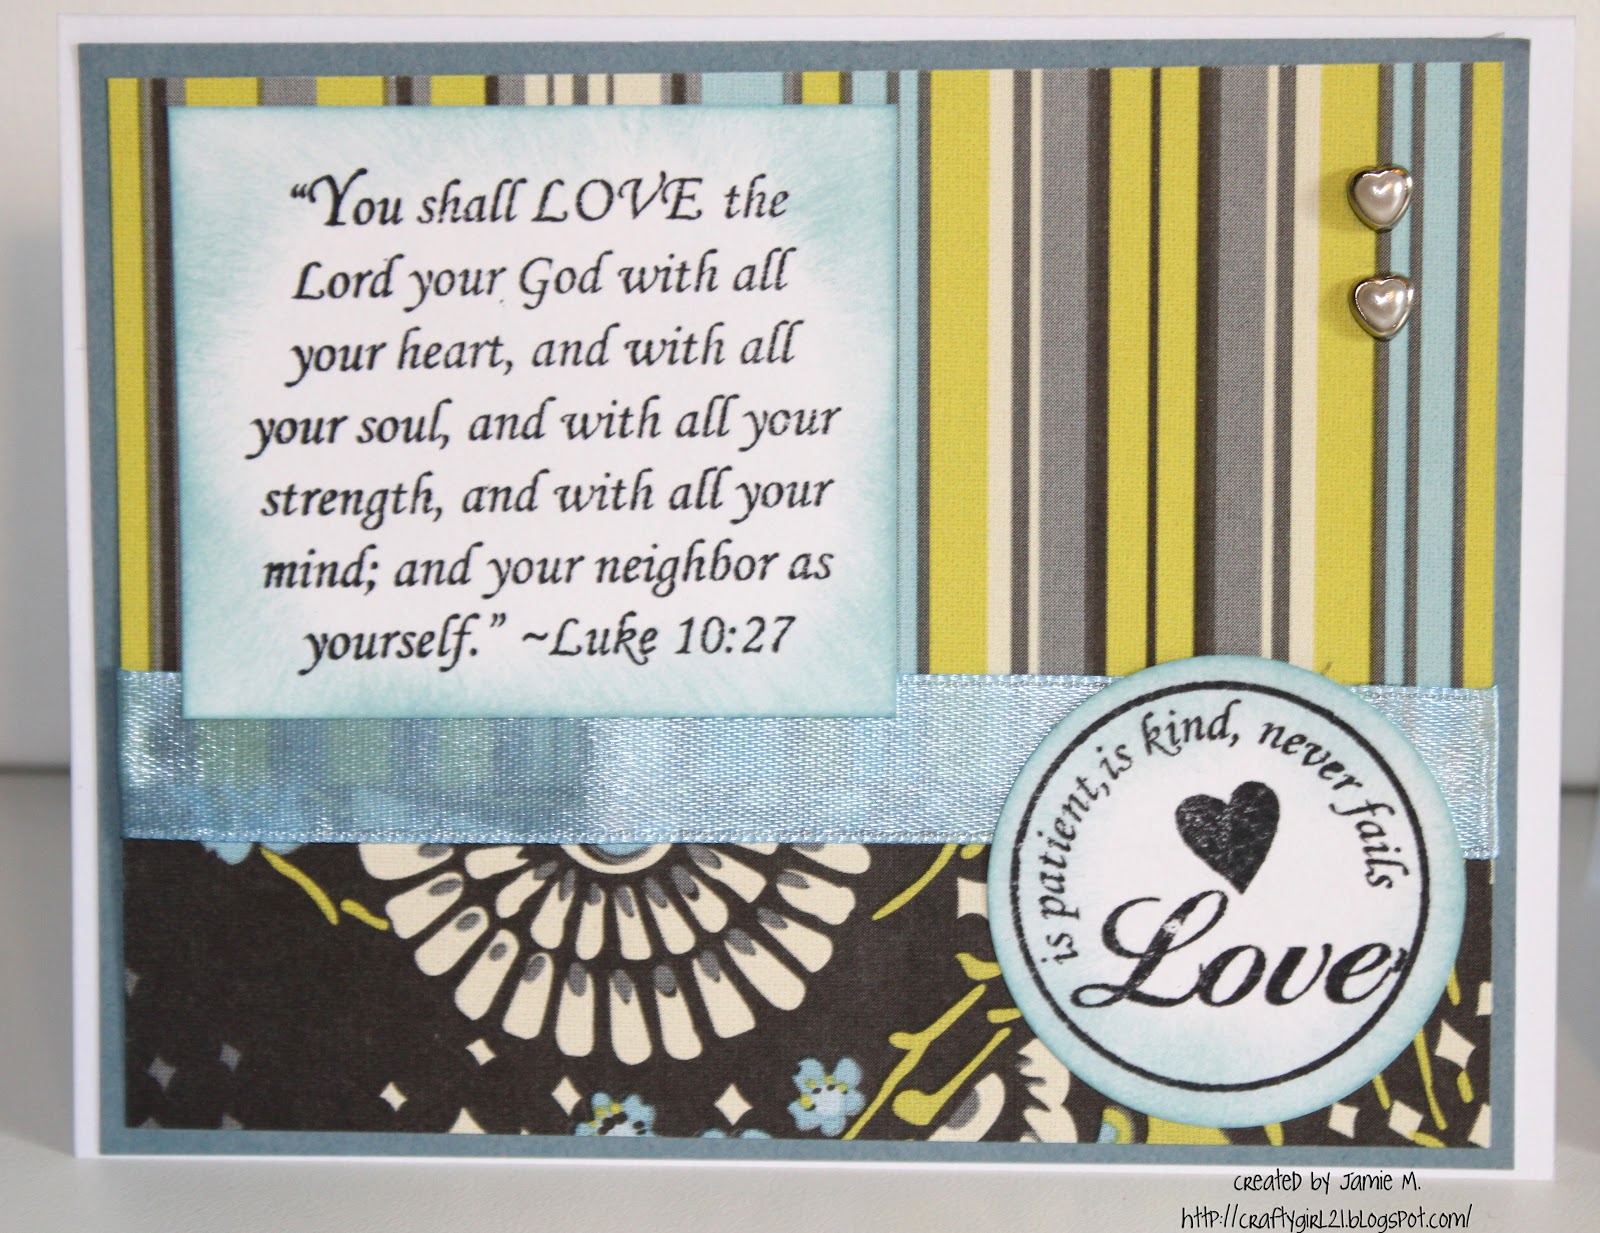 “You shall LOVE the
Lord your God with all
your heart, and with all
your soul, and with all your
strength, and with all your
mind; and your neighbor as
yourself.” ~Luke 10:27
is patient, is kind, never fails
Love
created by Jamie M.
http://craftygirl21.blogspot.com/